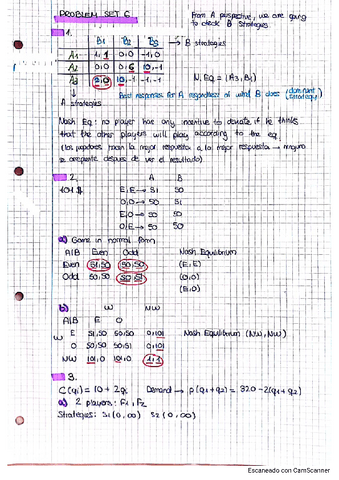 PROBLEM SET 6
From A perspective, we are going
to check B strategies
1.
B1 B2 B3 → B strategies
A1 1,1 0,0 -1,0
A2 0,0 0,6 10,-1
A3 2,0 10,-1 -1,-1
N.EQ = (A3, B1)
Best responses for A regardless of what B does (dominant strategy)
A strategies
Nash Eq: no player has any incentive to deviate if he thinks
that the other players will play according to the eq.
(los jugadores hacen la mejor respuesta a la mejor respuesta → ninguno
se arrepiente despues de ver el resultado)
2.
A B
101 $
E,E → 51 50
O,O → 50 51
E,O → 50 50
O,E → 50 50
a) Game in normal form
A|B Even Odd Nash Equilibrium
Even 51,50 50,50 (E,E)
Odd 50,50 50,51 (O,O)
(E,O)
b) W NW
A|B E O
W E 51,50 50,50 0,101 Nash Equilibrium (NW,NW)
O 50,50 50,51 0,101
NW 101,0 101,0 1,1
3.
C(qi) = 10 + 2qi Demand → p(q1+q2) = 320-2(q1+q2)
a) 2 players: F1, F2
Strategies: S1(0,∞) S2(0,∞)
Escaneado con CamScanner